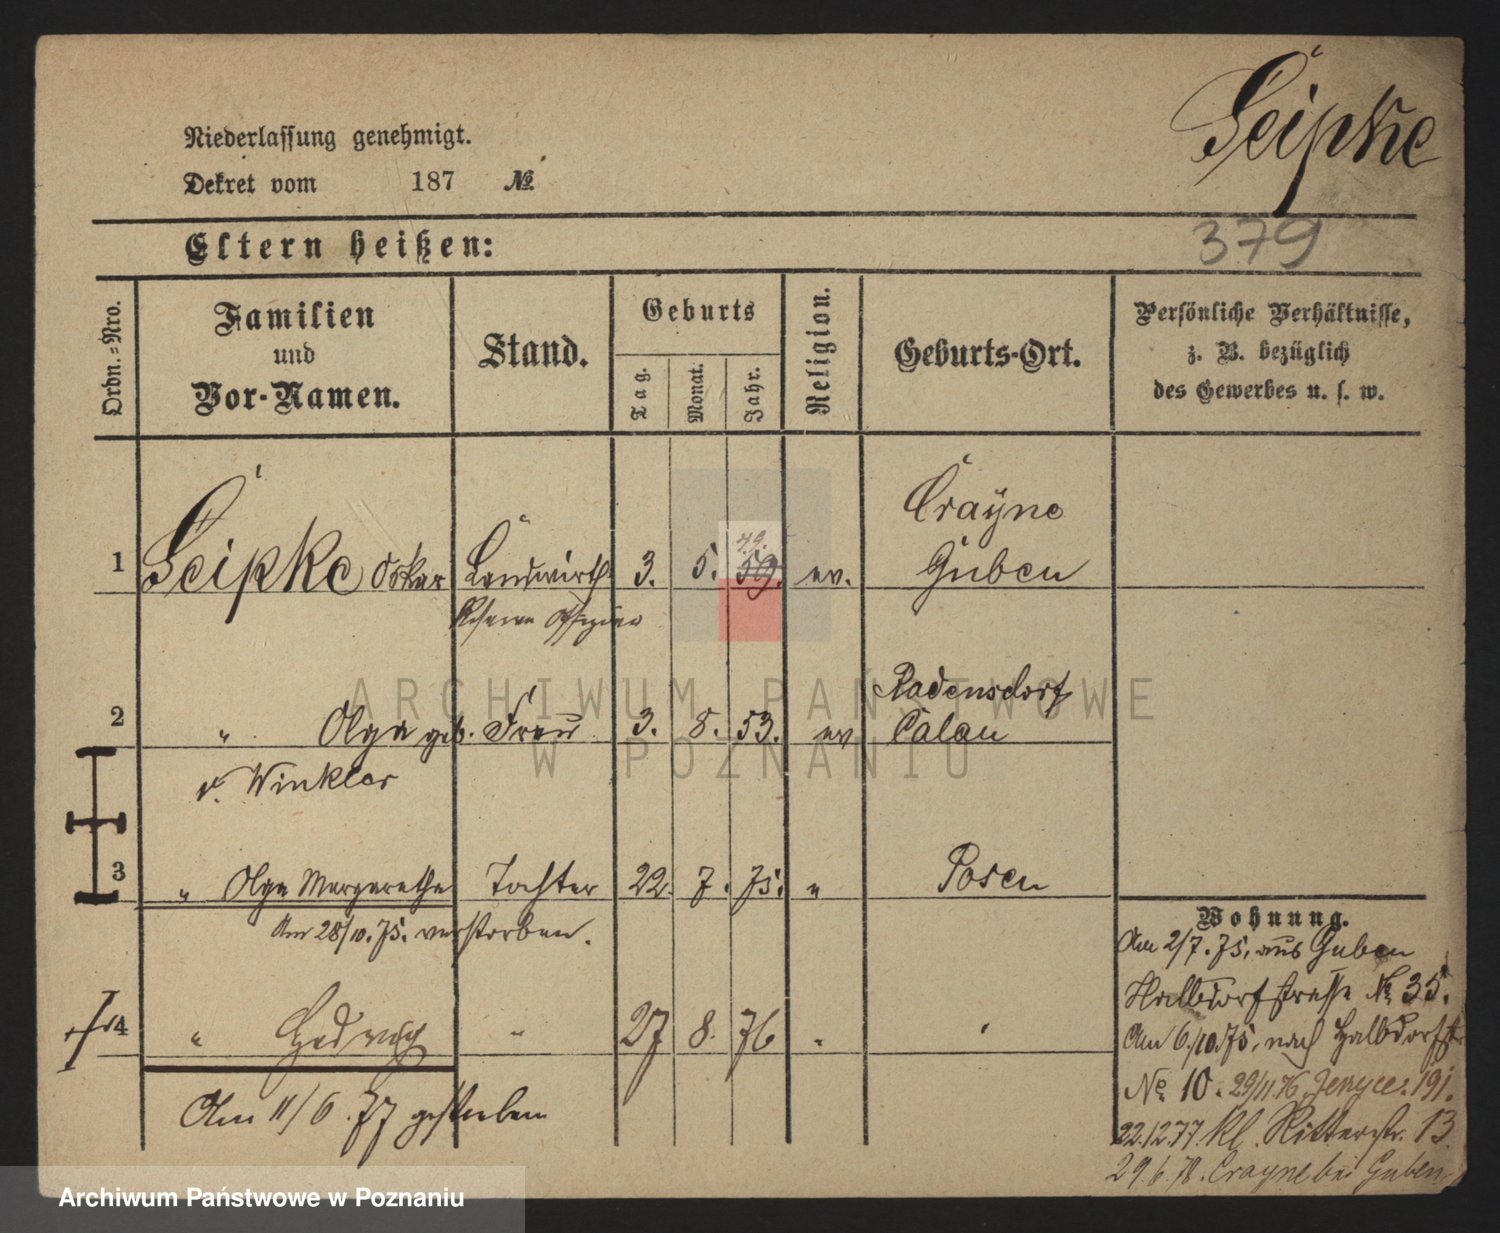 Geipke
Niederlassung genehmigt.
Dekret vom 187 №
379
Eltern heißen:
Ordn.=Nro.
Familien
und
Vor-Namen.
Stand.
Geburts
Tag.
Monat.
Jahr.
Religion.
Geburts-Ort.
Persönliche Verhältnisse,
z. B. bezüglich
des Gewerbes u. s. w.
Crayne
49.
1 Geipke Oskar Landwirth 3. 5. 59. ev. Guben
Reserve Offizier
Radensdorf
2 " Olga geb. Frau 3. 8. 53. ev Calau
v. Winkler
3 " Olga Margarethe Tochter 22. 7. 75. " Posen
Am 28/10. 75. verstorben.
4 " Hedwig " 27 8. 76 " "
Am 11/6. 77 gestorben
Wohnung.
Am 2/7. 75. aus Guben
Halbdorfstrasse № 35.
Am 6/10. 75. nach Halbdorfstr
№ 10. 29/11. 76. Jerzyce 191.
22.12.77. Kl. Ritterstr. 13.
29.6.78. Crayne bei Guben
ARCHIWUM PAŃSTWOWE
W POZNANIU
Archiwum Państwowe w Poznaniu